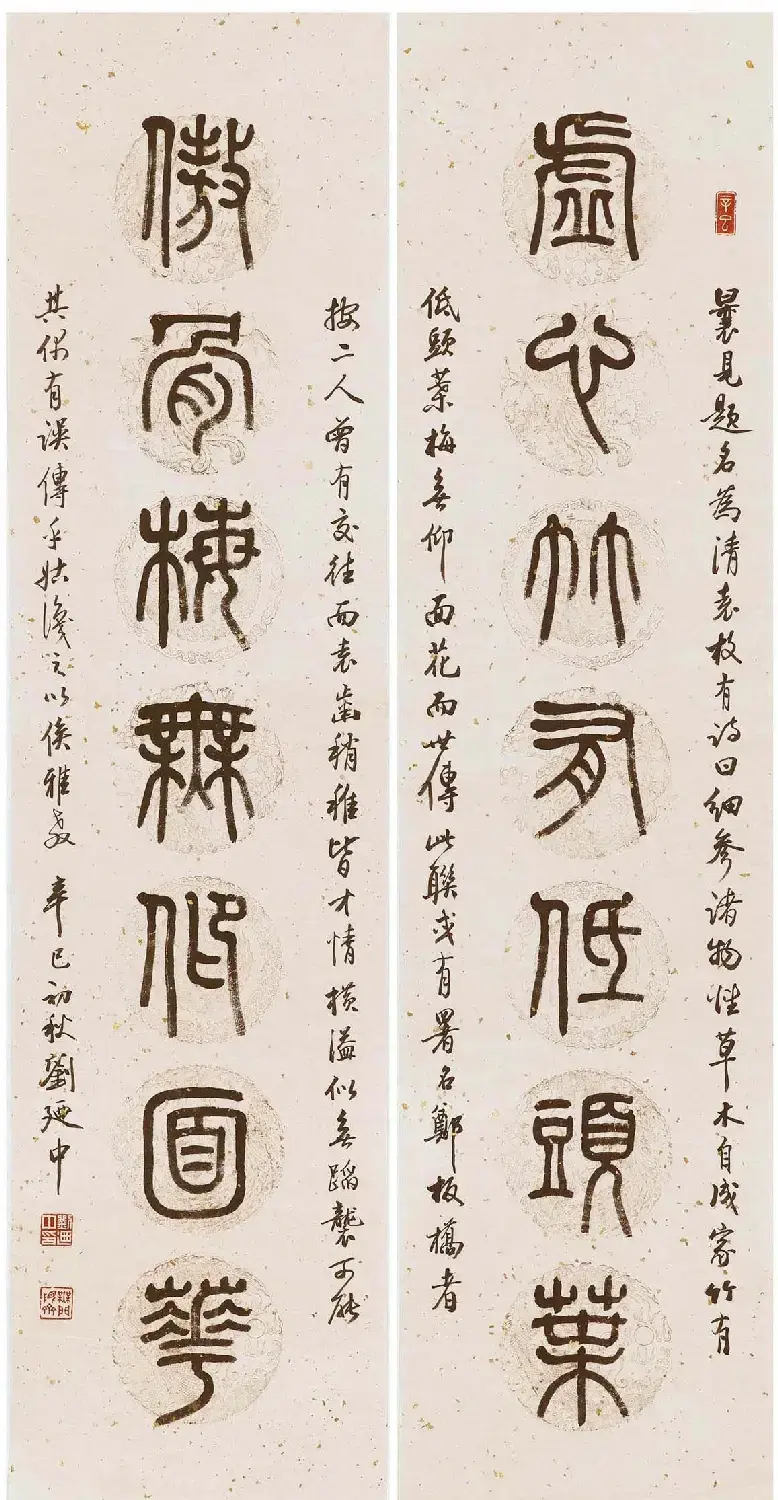 虛心竹有低頭葉
曩見題名為清袁枚有詩曰細參諸物性草木自成家竹有
低頭葉梅無仰面花而世傳此聯或有署名鄭板橋者
傲骨梅無仰面華
按二人曾有交往而袁齒稍稚皆才情橫溢似無蹈襲可能
其偶有誤傳乎姑識之以俟雅教 辛巳初秋劉延中